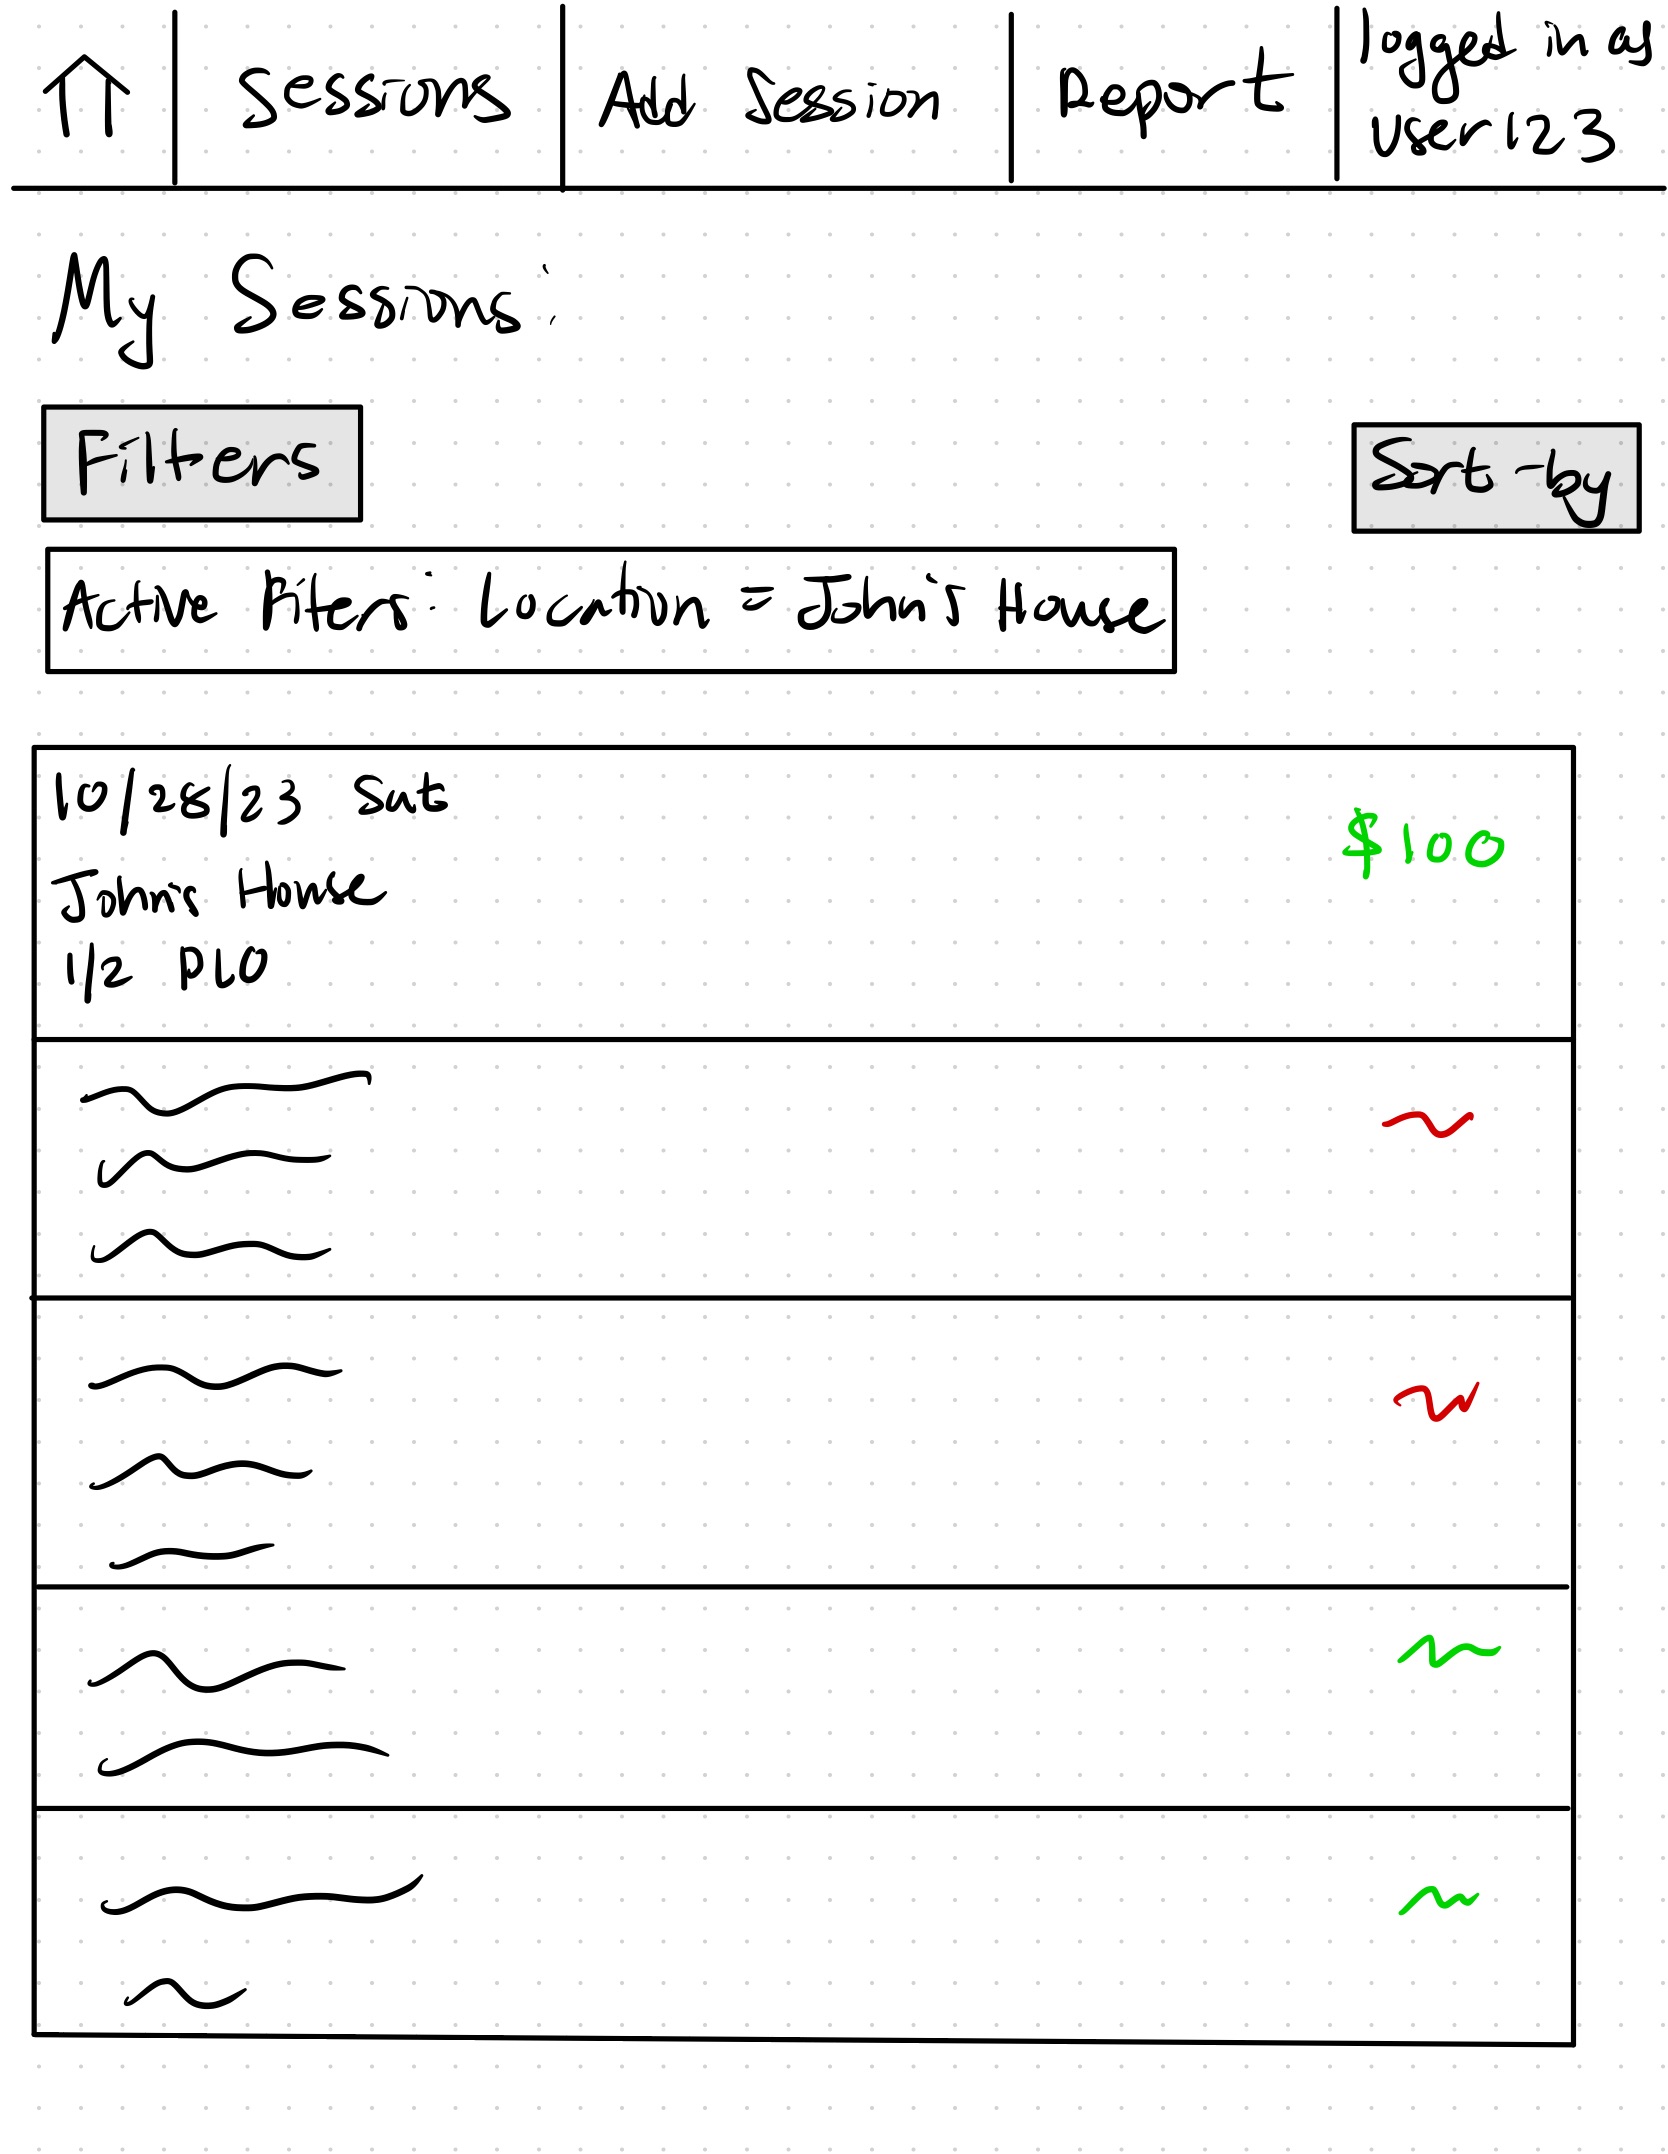 Sessions
Add Session
Report
logged in as
user123
My Sessions:
Filters
Sort-by
Active Filters: Location = John's House
10/28/23 Sat
$100
John's House
1/2 PLO